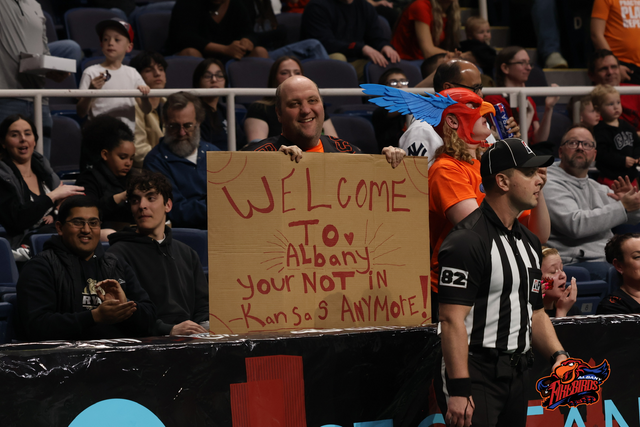 WELCOME
TO
Albany
your NOT in
Kansas ANYMORE!
82
ALBANY
FIREBIRDS